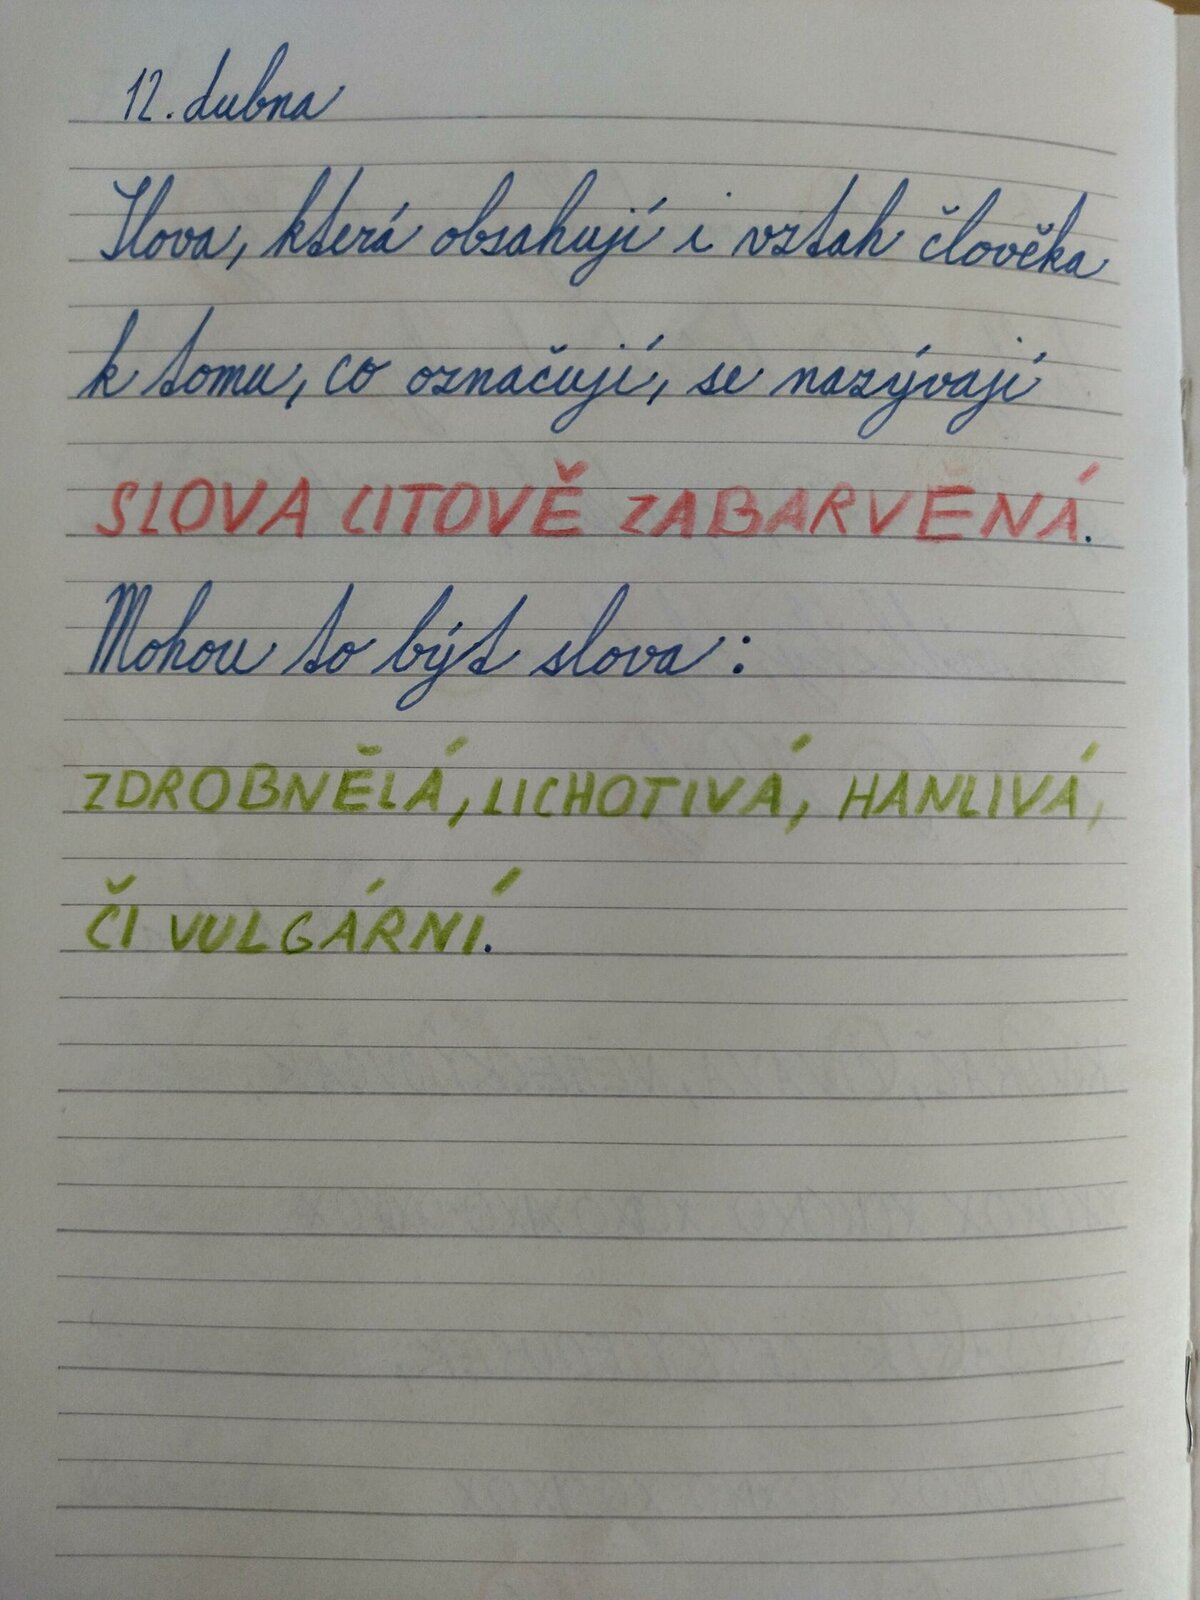 12. dubna
Slova, která obsahují i vztah člověka
k tomu, co označují, se nazývají
SLOVA CITOVĚ ZABARVENÁ.
Mohou to být slova:
ZDROBNĚLÁ, LICHOTIVÁ, HANLIVÁ,
ČI VULGÁRNÍ.